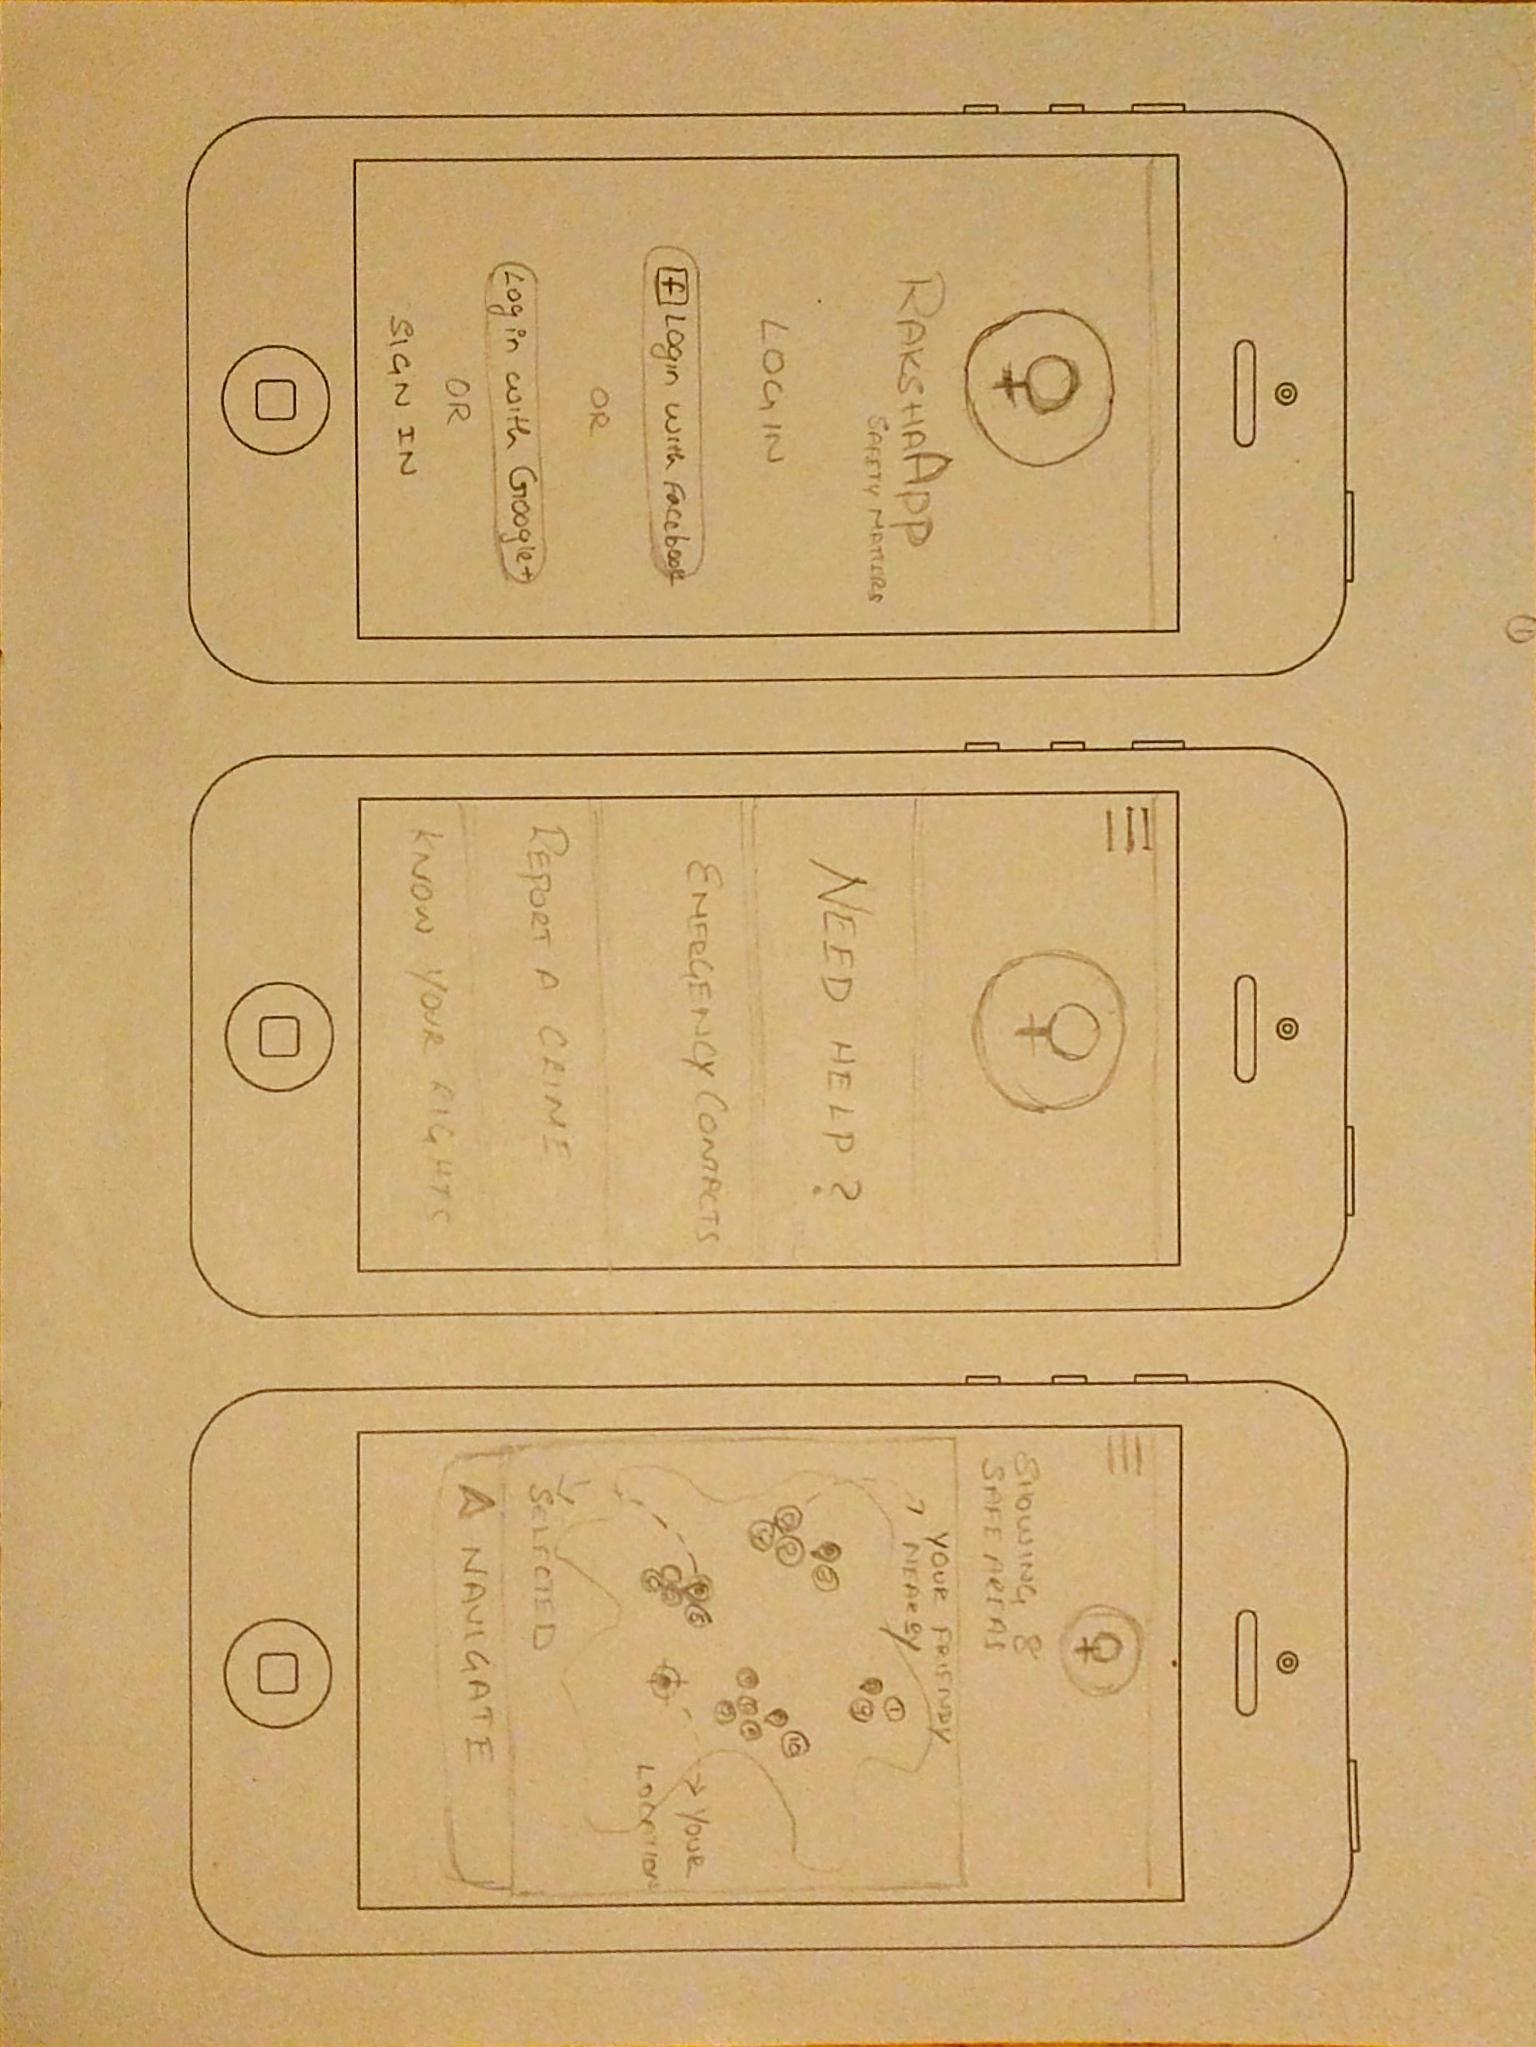 ①
RAKSHAAPP
SAFETY MATTERS
LOGIN
f Login with Facebook
OR
Login with Google+
OR
SIGN IN
NEED HELP?
EMERGENCY CONTACTS
REPORT A CRIME
KNOW YOUR RIGHTS
SHOWING 8
SAFE AREAS
YOUR FRIENDY
NEARBY
1
9
3
2
10
6
YOUR
LOCATION
SELECTED
NAVIGATE